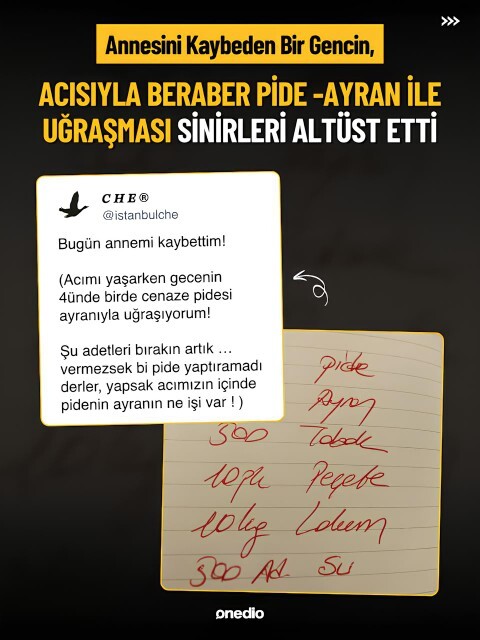 Annesini Kaybeden Bir Gencin,
ACISIYLA BERABER PİDE -AYRAN İLE
UĞRAŞMASI SİNİRLERİ ALTÜST ETTİ
CHE®
@istanbulche
Bugün annemi kaybettim!
(Acımı yaşarken gecenin
4ünde birde cenaze pidesi
ayranıyla uğraşıyorum!
Şu adetleri bırakın artık ...
vermezsek bi pide yaptıramadı
derler, yapsak acımızın içinde
pidenin ayranın ne işi var ! )
pide
Ayran
300 Tabak
10pk Peçete
10kg Lokum
300 Ad. Su
onedio